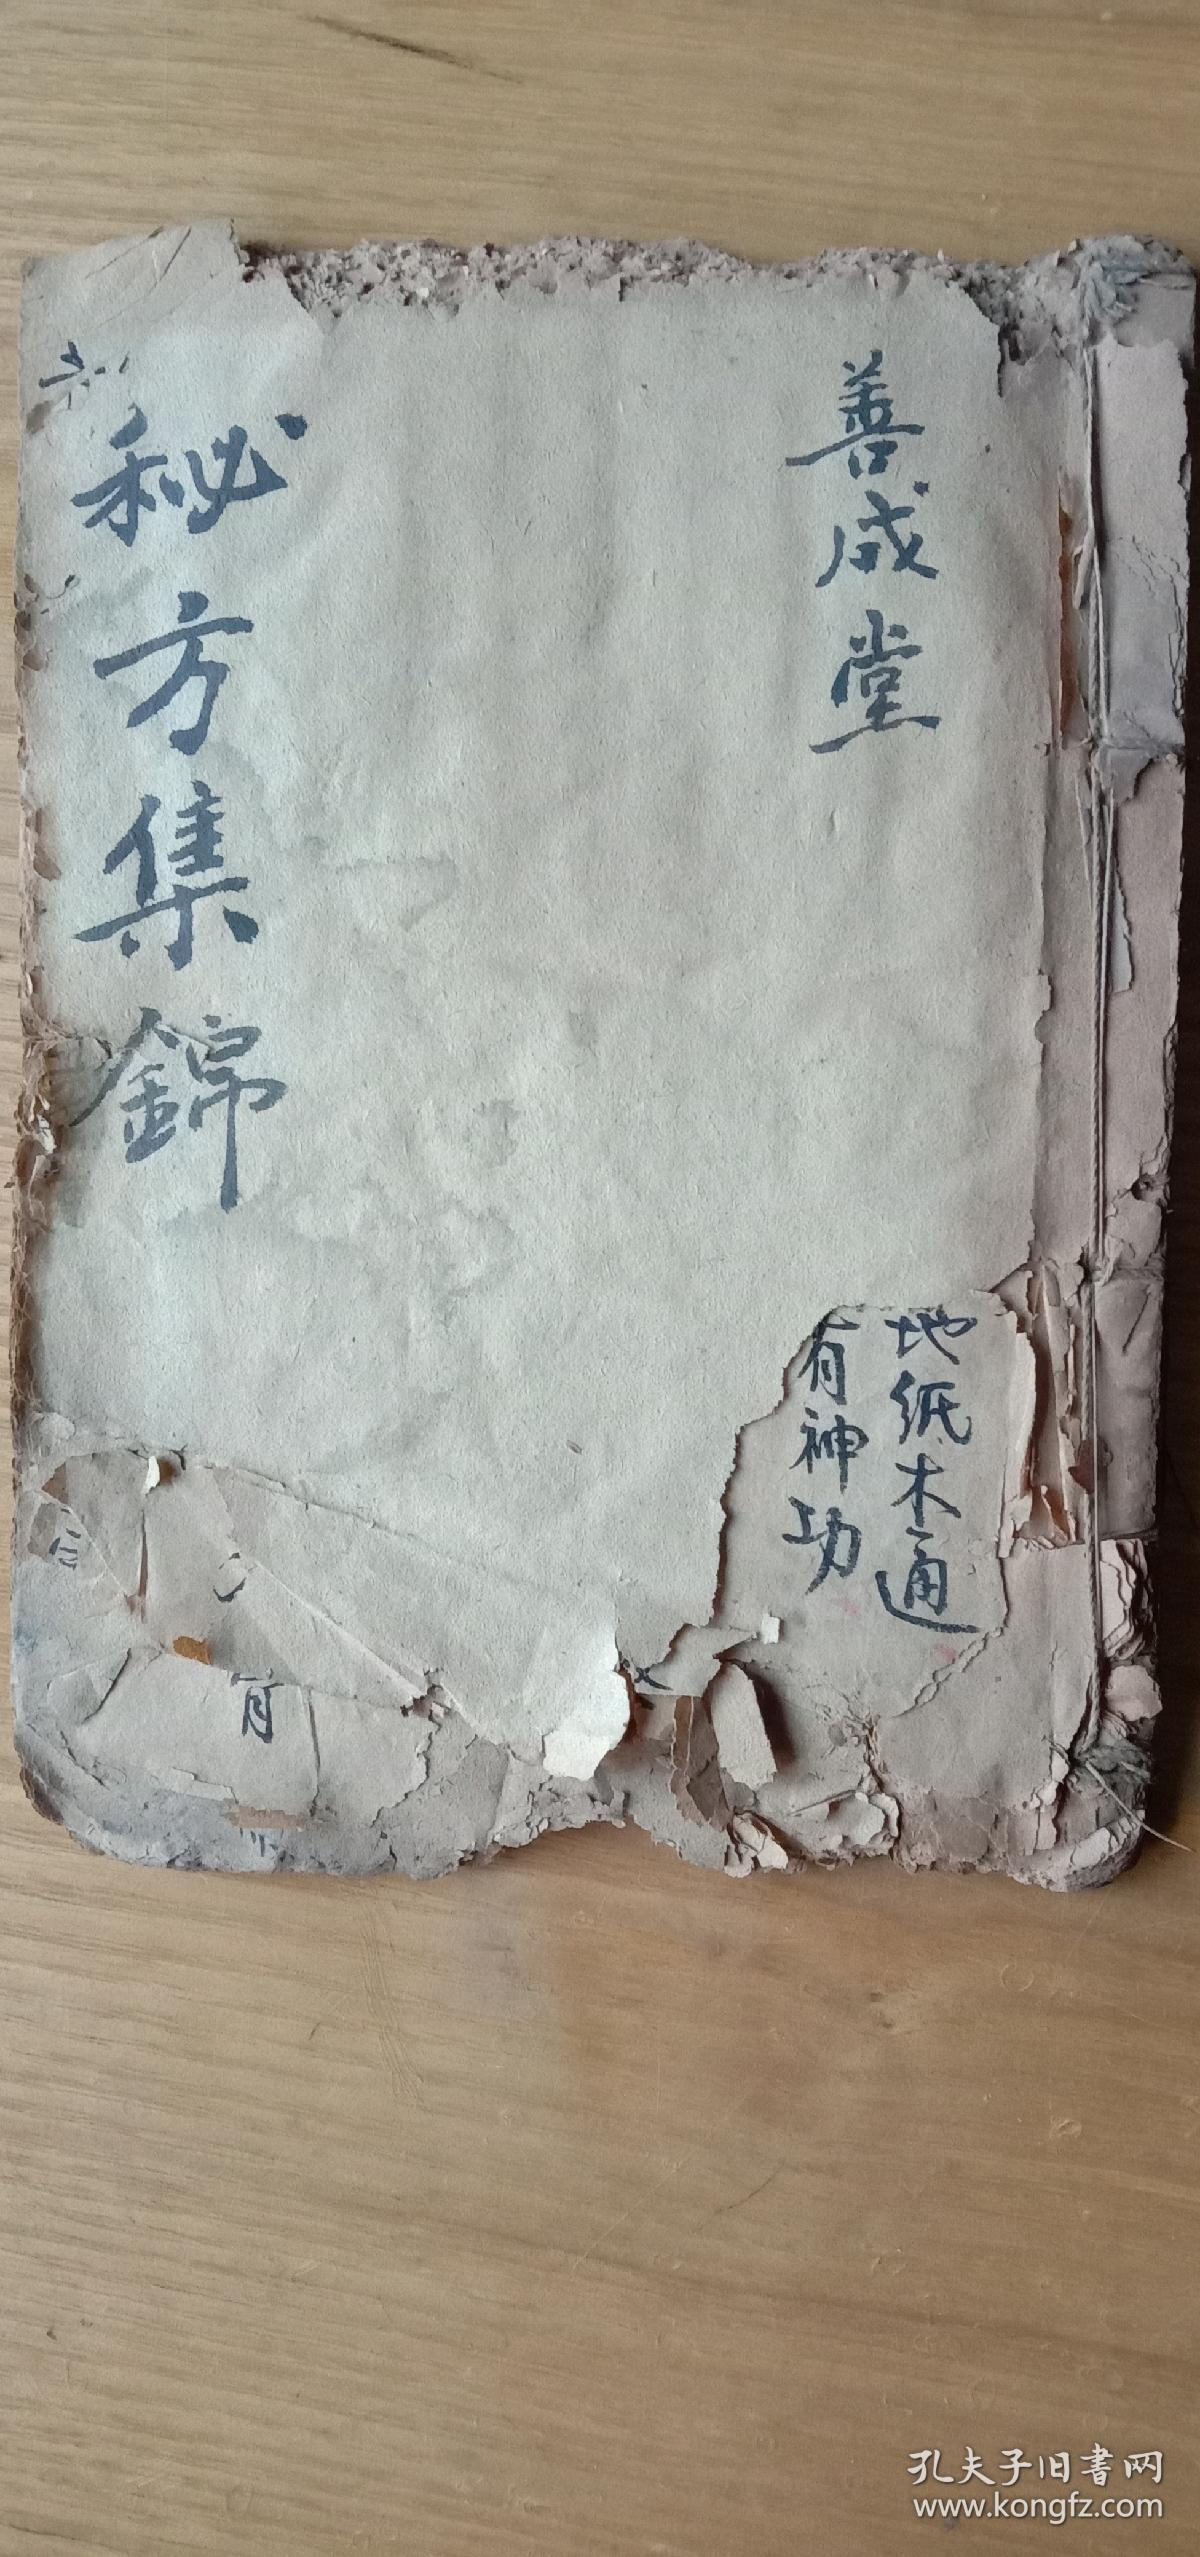 善成堂
秘方集錦
地纸木通
有神功
孔夫子旧書网
www.kongfz.com